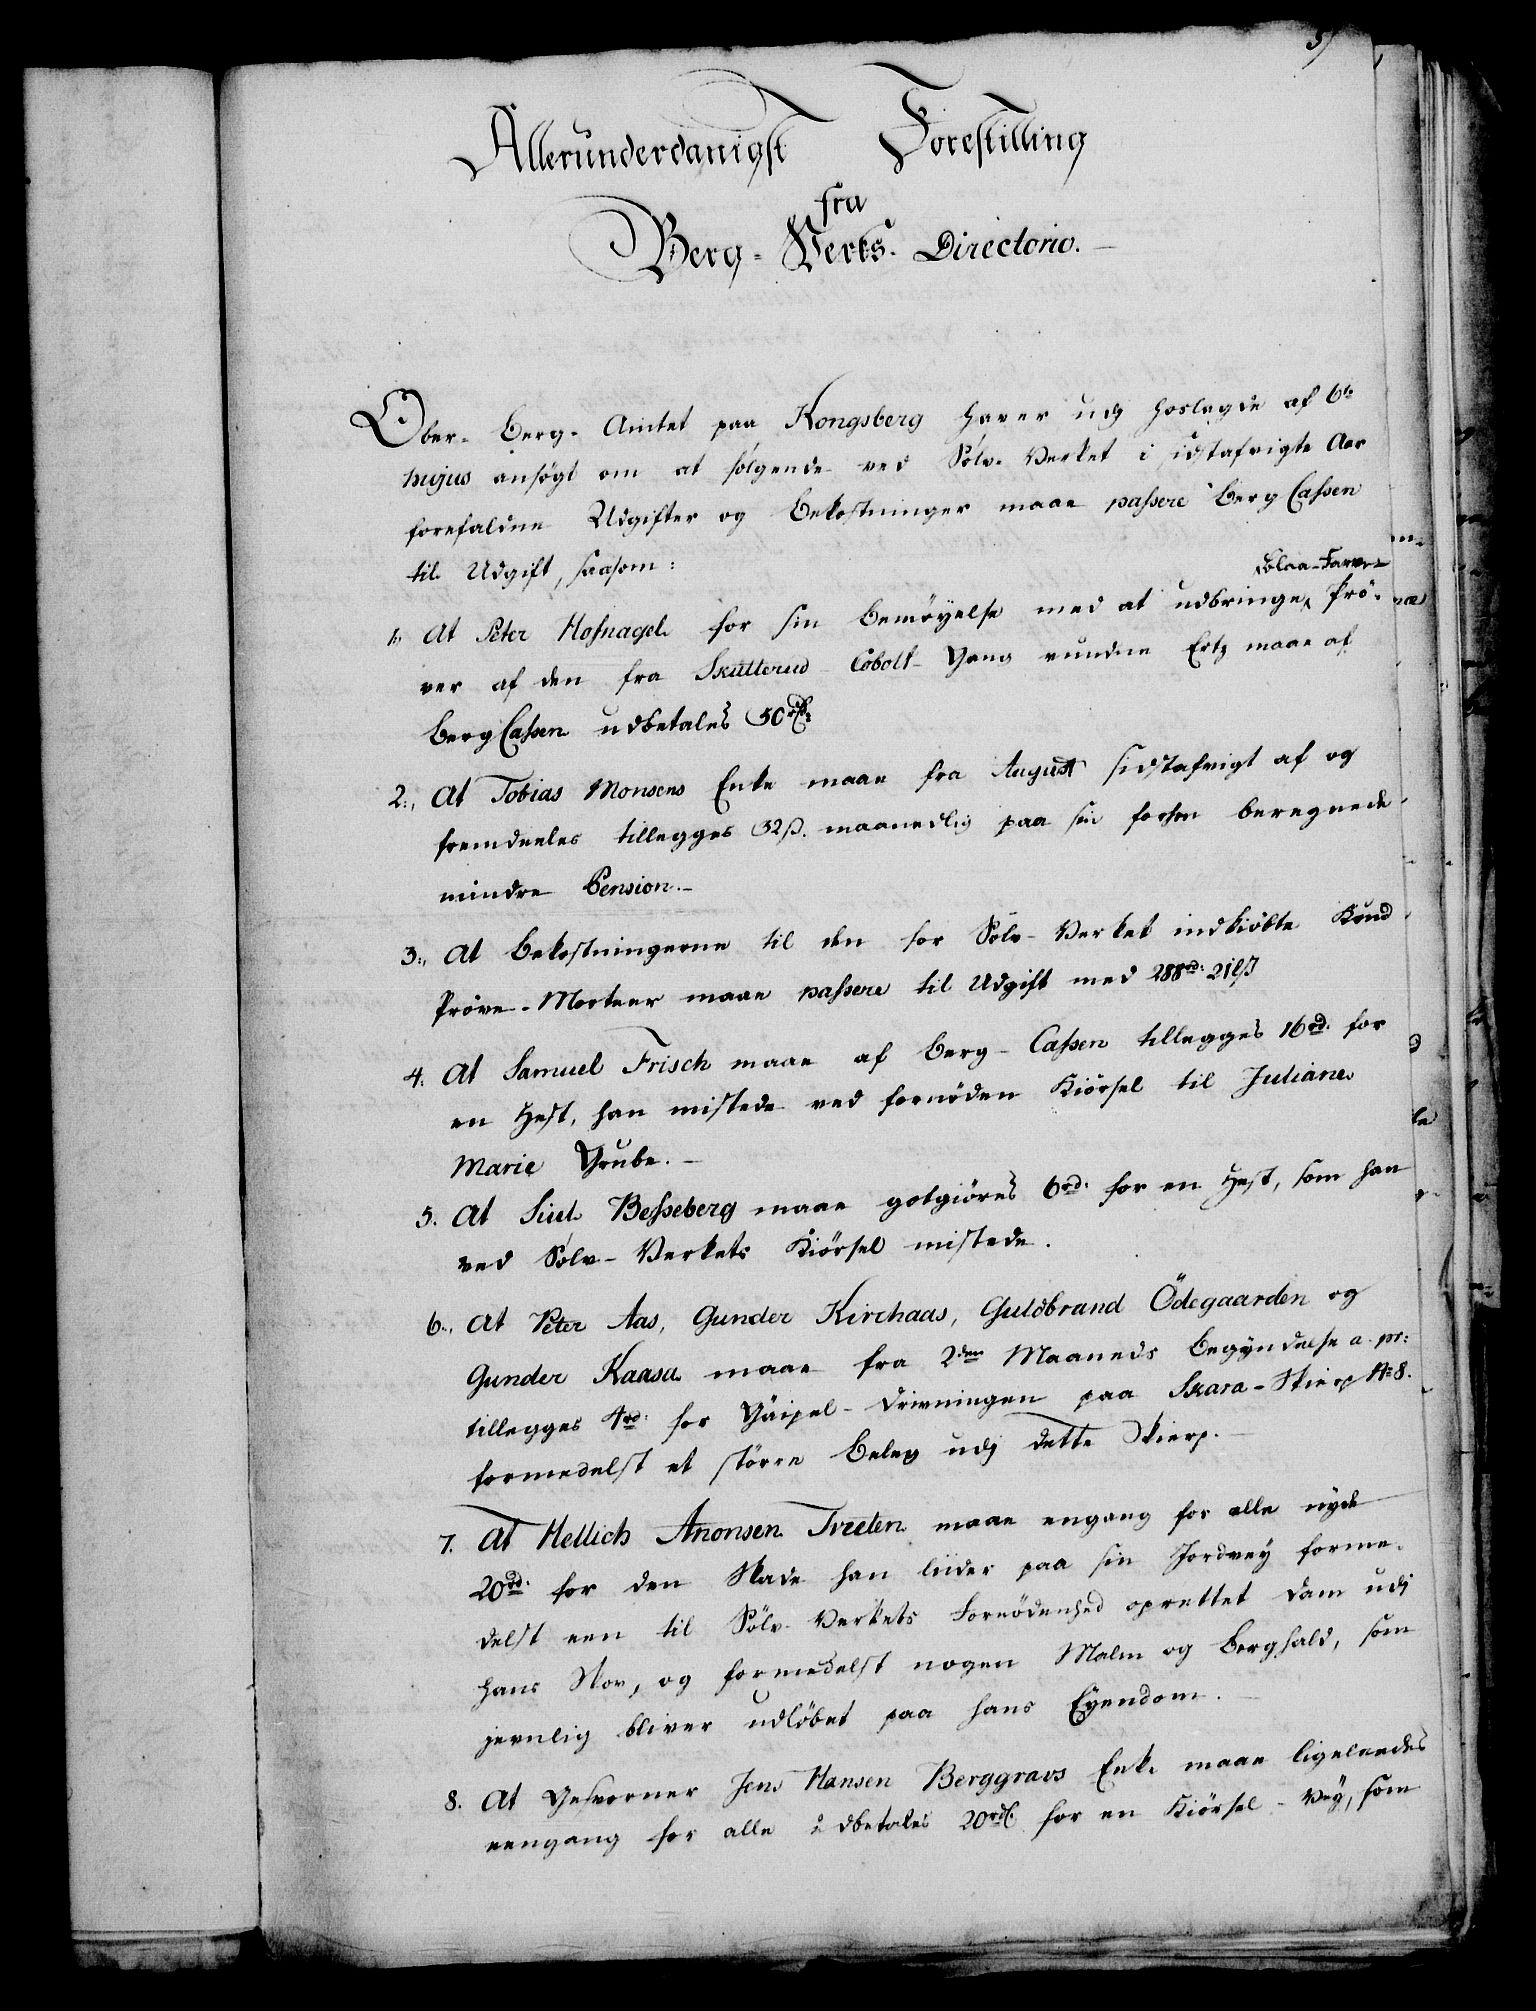 Allerunderdanigst Forestilling
fra
Berg-Verks-Directorio.
Ober-Berg-Amtet paa Kongsberg haver udj hoslagde af 6te
hujus ansøgt om at følgende ved Sølv-Verket i sidstafvigte Aar
forefaldne Udgifter og Bekostninger maae passere Berg Cassen
til Udgift, saasom:
1., At Peter Hofnagel for sin Bemøyelse med at udbringe Blaa-Farve Prö-
ver af den fra Skutterud Cobolt-Gang vundne Ertz maae af
Berg Cassen udbetales 50 rd:
2., At Tobias Monsens Enke maae fra August sidstafvigt af og
fremdeeles tillegges 32 ß. maanedlig paa sin forhen beregnede
mindre Pension.
3., At Bekostningerne til den for Sølv-Verket indkiöbte Kund
Pröve-Morteer maae passere til Udgift med 288 rd: 21 ß
4. At Samuel Frisch maae af Berg-Cassen tillegges 16 rd. for
en Hest, han mistede ved fornöden Kiörsel til Juliane
Marie Grube.
5. At Siul Besseberg maae gotgiöres 6 rd. for en Hest, som han
ved Sölv-Verkets Kiörsel mistede.
6., At Peter Aas, Gunder Kirchaas, Guldbrand Ödegaarden og
Gunder Kaasa maae fra 2den Maaneds Begyndelse a. pr:
tillegges 4 rd. for Gäipel-Drivningen paa Skara-Skierp No 8.
formedelst et större Beleg udj dette Skierp.
7. At Hellich Anonsen Tveeten maae engang for alle nyde
20 rd. for den Skade han liider paa sin Jordvey forme-
delst een til Sölv-Verkets Fornödenhed oprettet Dam udj
hans Skov, og formedelst nogen Malm og Berghald, som
jevnlig bliver udlöbet paa hans Eyendom.
8. At Geschworner Jens Hansen Berggravs Enke maae ligeleedes
eengang for alle udbetales 20 rd. for en Kiörsel-Vey, som